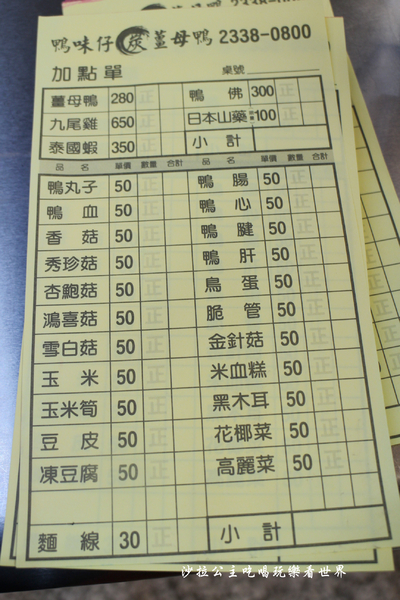 鴨味仔 炭 薑母鴨 2338-0800
加點單 桌號
薑母鴨 280 正 鴨佛 300 正
九尾雞 650 正 日本山藥 100 正
泰國蝦 350 正 小計
品名 單價 數量 合計 品名 單價 數量 合計
鴨丸子 50 正 鴨腸 50 正
鴨血 50 正 鴨心 50 正
香菇 50 正 鴨腱 50 正
秀珍菇 50 正 鴨肝 50 正
杏鮑菇 50 正 鳥蛋 50 正
鴻喜菇 50 正 脆管 50 正
雪白菇 50 正 金針菇 50 正
玉米 50 正 米血糕 50 正
玉米筍 50 正 黑木耳 50 正
豆皮 50 正 花椰菜 50 正
凍豆腐 50 正 高麗菜 50 正
麵線 30 正 小計
沙拉公主吃喝玩樂看世界